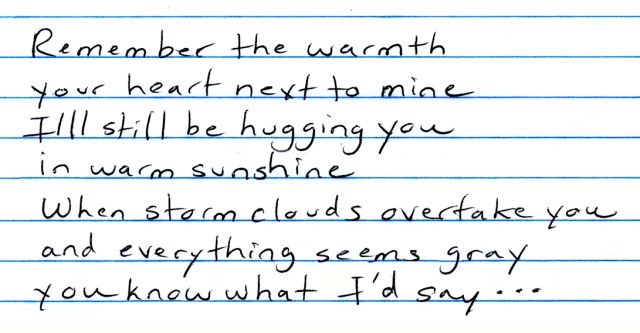 Remember the warmth
your heart next to mine
I'll still be hugging you
in warm sunshine
When storm clouds overtake you
and everything seems gray
you know what I'd say...